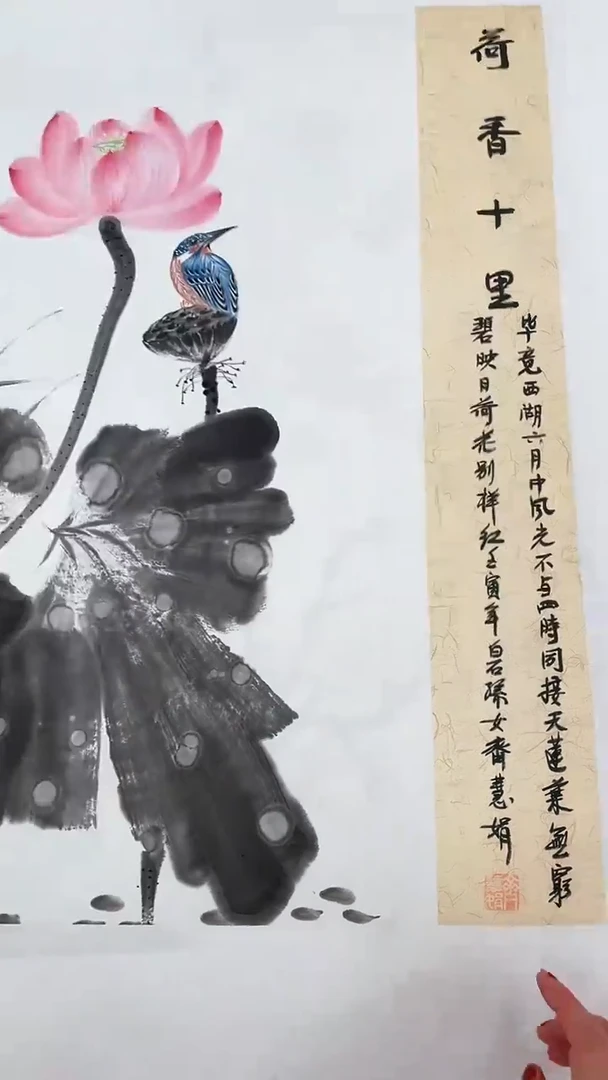 荷香十里
毕竟西湖六月中风光不与四時同接天蓮葉無窮
碧映日荷花别樣红壬寅年白石孫女齊慧娟